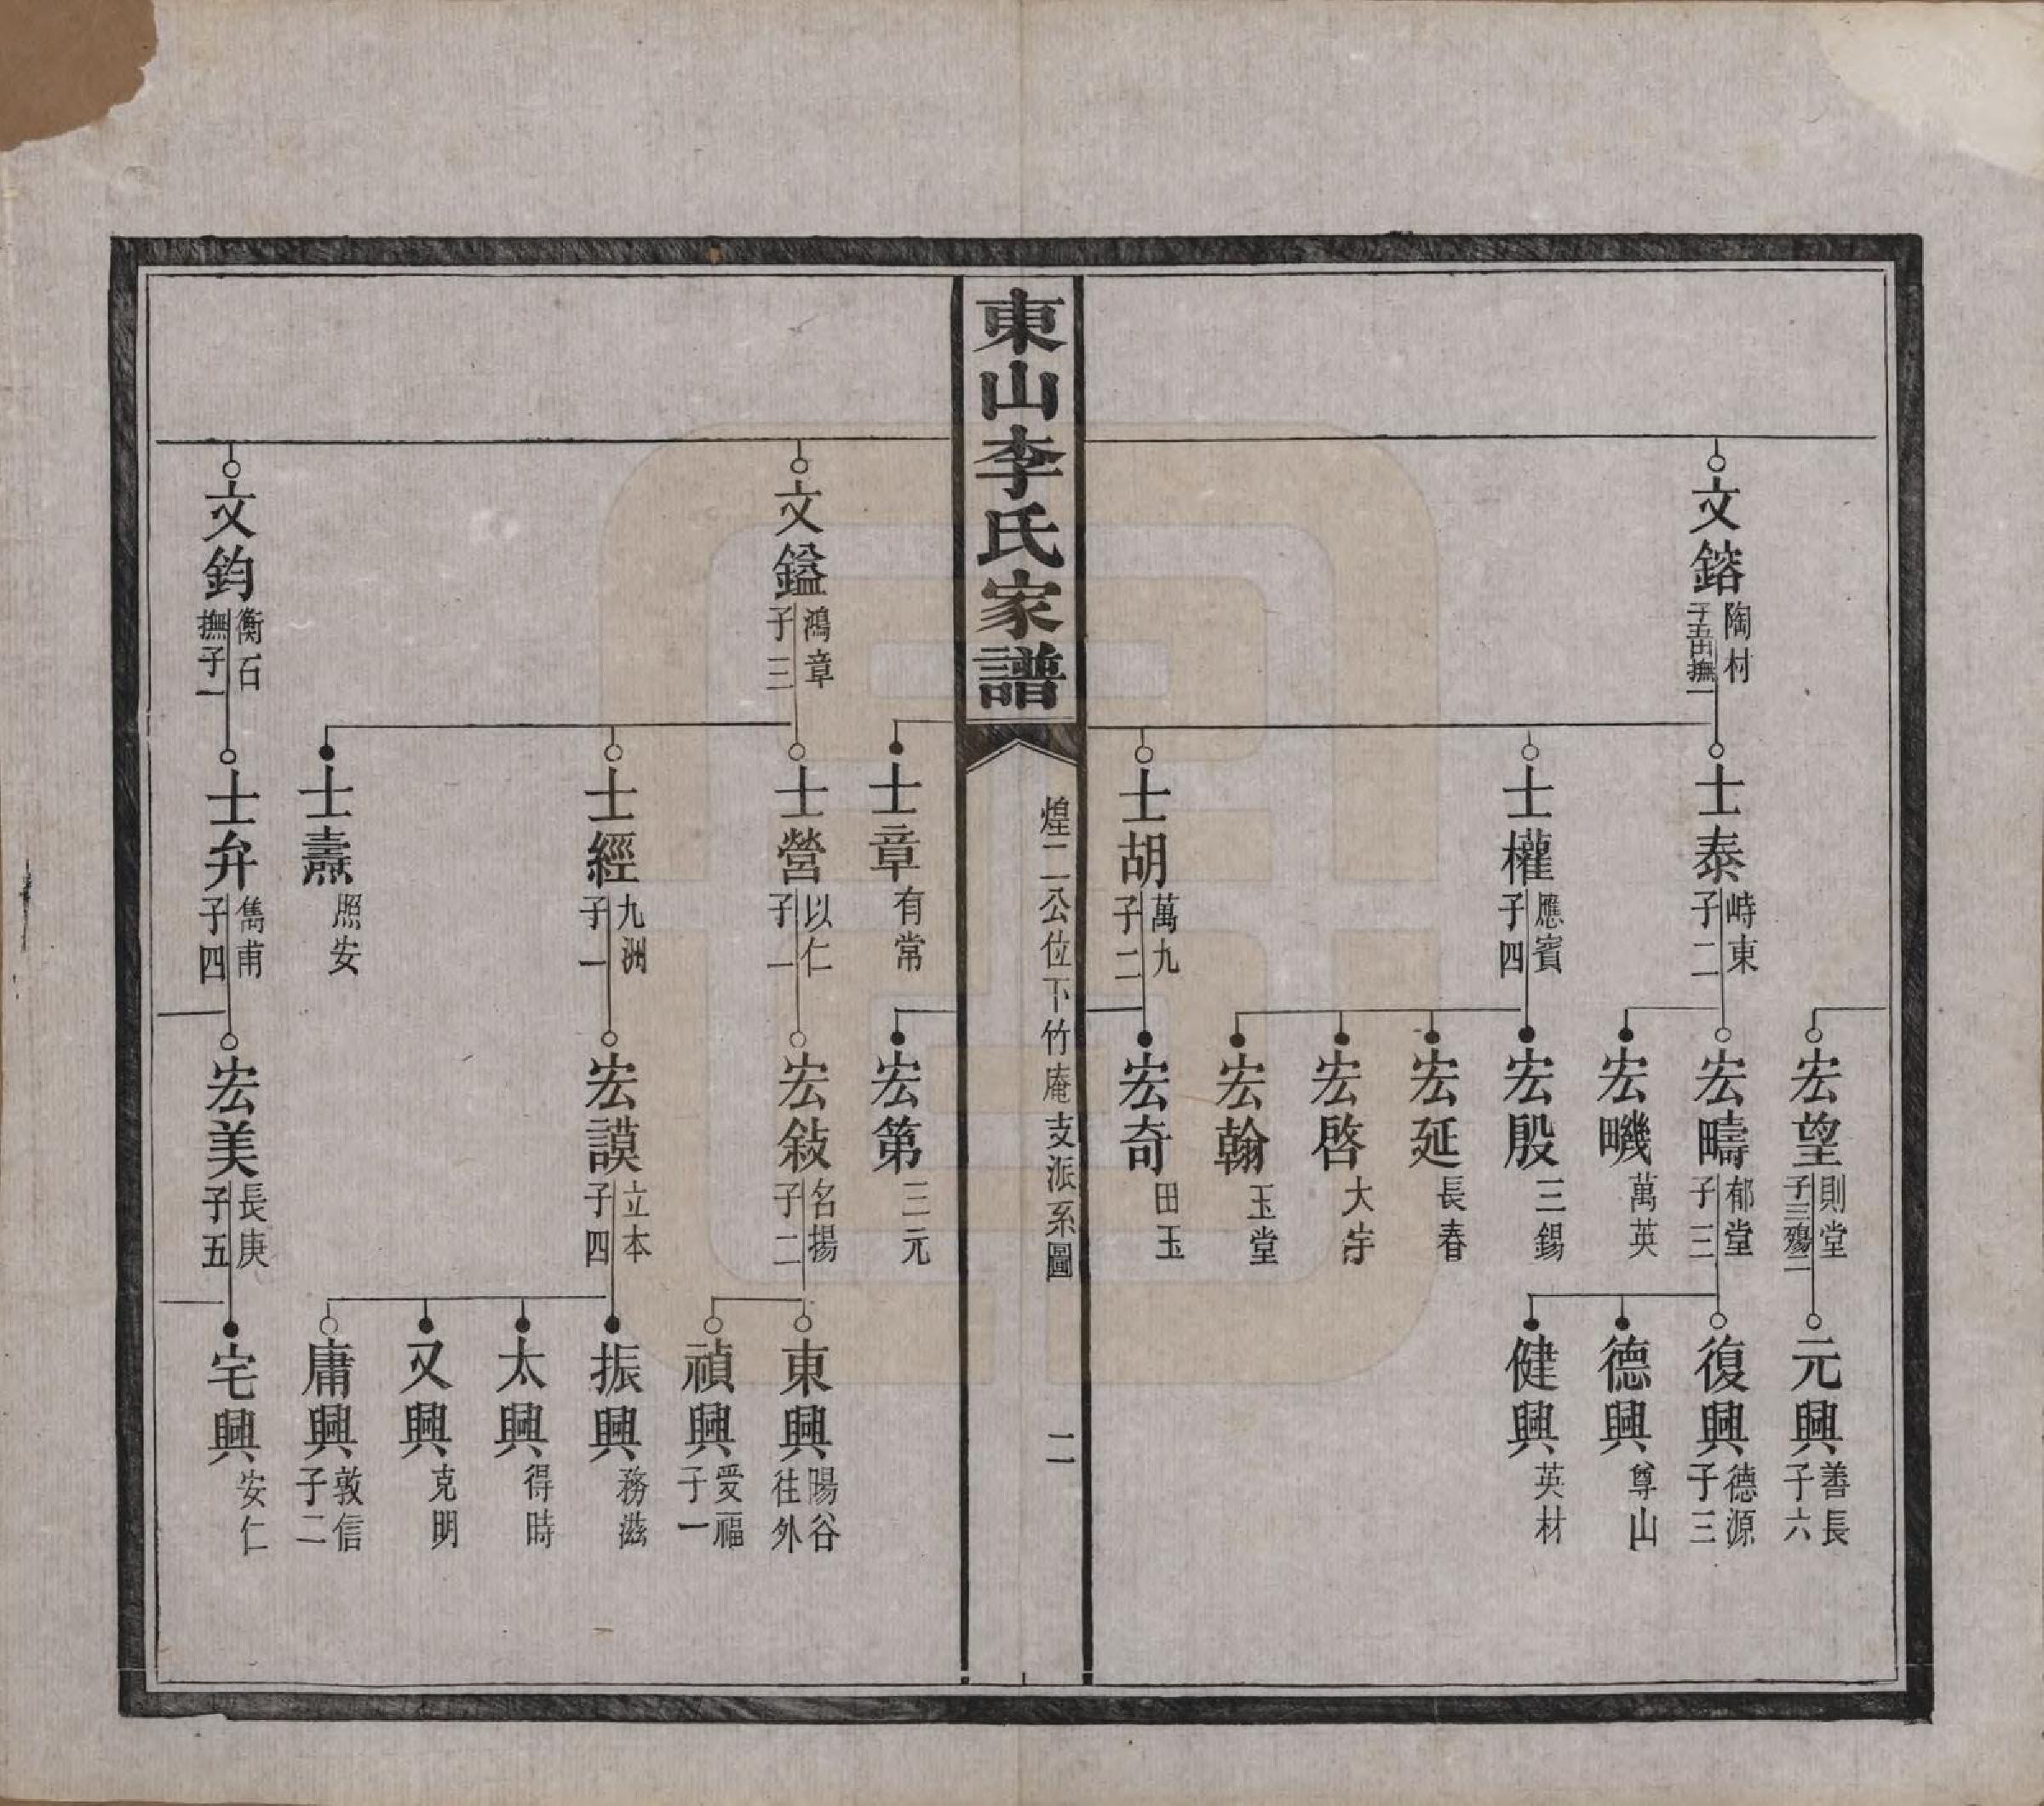 文鎔 陶村 子五出撫一
士泰 峙東 子二
士權 應賓 子四
士胡 萬九 子二
宏望 則堂 子三殤二
宏疇 郁堂 子三
宏畯 萬英
宏殷 三錫
宏延 長春
宏啓 大宇
宏翰 玉堂
宏奇 田玉
元興 善長 子六
復興 德源 子三
德興 尊山
健興 英材
東山李氏家譜
煌二公位下竹庵支派系圖
二
文鎰 鴻章 子三
文鈞 衡石 撫子一
士章 有常
士營 以仁 子一
士經 九洲 子一
士燾 照安
士弁 雋甫 子四
宏第 三元
宏敍 名揚 子二
宏謨 立本 子四
宏美 長庚 子五
東興 陽谷 往外
禎興 受福 子一
振興 務滋
太興 得時
又興 克明
庸興 敦信 子二
宅興 安仁